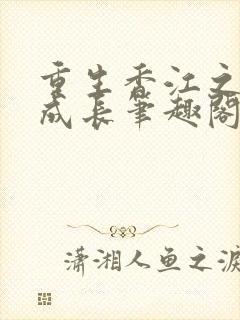 重生香江之
成长笔趣阁
潇湘人鱼之泪